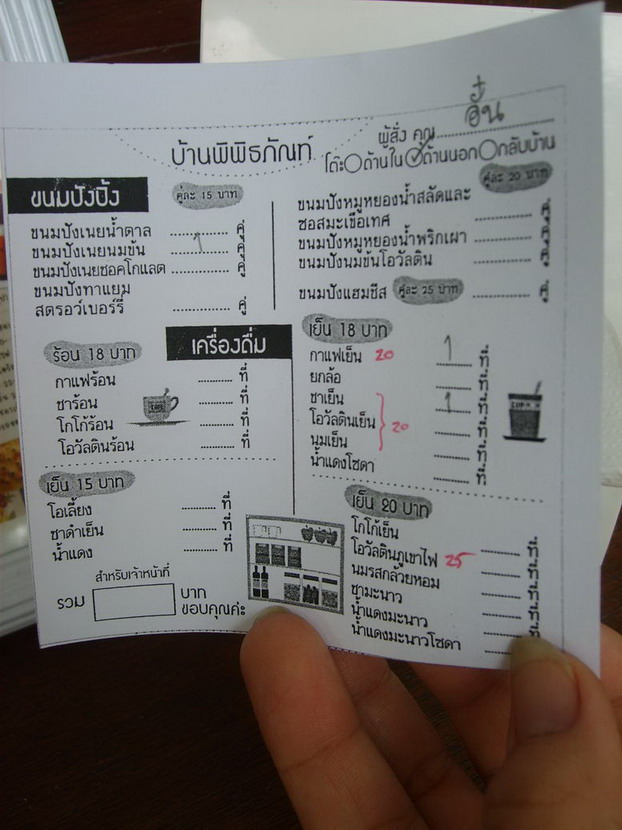 ผู้สั่ง คุณ อั๋น
บ้านพิพิธภัณฑ์
โต๊ะ ด้านใน ด้านนอก กลับบ้าน
ขนมปังปิ้ง
คู่ละ 15 บาท
ขนมปังเนยน้ำตาล .......... คู่
ขนมปังเนยนมข้น 1 คู่
ขนมปังเนยชอคโกแลต .......... คู่
ขนมปังทาแยม
สตรอว์เบอร์รี่ .......... คู่
คู่ละ 20 บาท
ขนมปังหมูหยองน้ำสลัดและ
ซอสมะเขือเทศ .......... คู่
ขนมปังหมูหยองน้ำพริกเผา .......... คู่
ขนมปังนมข้นโอวัลติน .......... คู่
ขนมปังแฮมชีส คู่ละ 25 บาท .......... คู่
เครื่องดื่ม
ร้อน 18 บาท
กาแฟร้อน .......... ที่
ชาร้อน .......... ที่
โกโก้ร้อน .......... ที่
โอวัลตินร้อน .......... ที่
เย็น 15 บาท
โอเลี้ยง .......... ที่
ชาดำเย็น .......... ที่
น้ำแดง .......... ที่
เย็น 18 บาท
กาแฟเย็น 20 1 ที่
ยกล้อ .......... ที่
ชาเย็น 1 ที่
โอวัลตินเย็น 20 .......... ที่
นมเย็น .......... ที่
น้ำแดงโซดา .......... ที่
เย็น 20 บาท
โกโก้เย็น .......... ที่
โอวัลตินภูเขาไฟ 25 .......... ที่
นมรสกล้วยหอม .......... ที่
ชามะนาว .......... ที่
น้ำแดงมะนาว .......... ที่
น้ำแดงมะนาวโซดา .......... ที่
สำหรับเจ้าหน้าที่
รวม บาท
ขอบคุณค่ะ